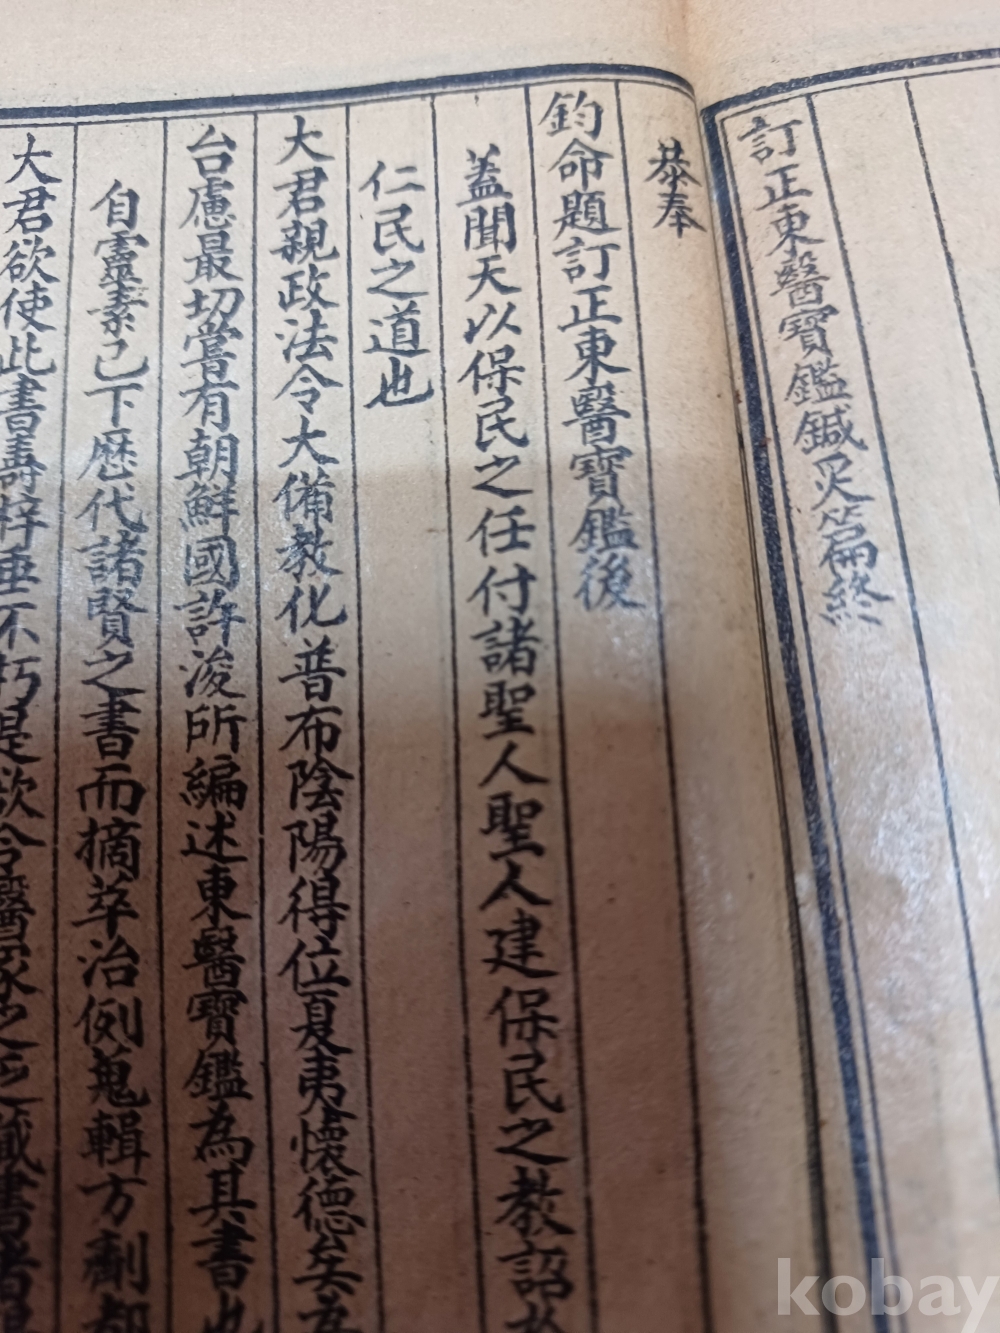 訂正東醫寶鑑鍼灸篇終
恭奉
鈞命題訂正東醫寶鑑後
蓋聞天以保民之任付諸聖人聖人建保民之教詔
仁民之道也
大君親政法令大備教化普布陰陽得位夏夷懷德矣
台慮最切嘗有朝鮮國許浚所編述東醫寶鑑為其書也
自靈素已下歷代諸賢之書而摘萃治例蒐輯方劑都
大君欲使此書壽梓垂不朽是欲令醫家
kobay